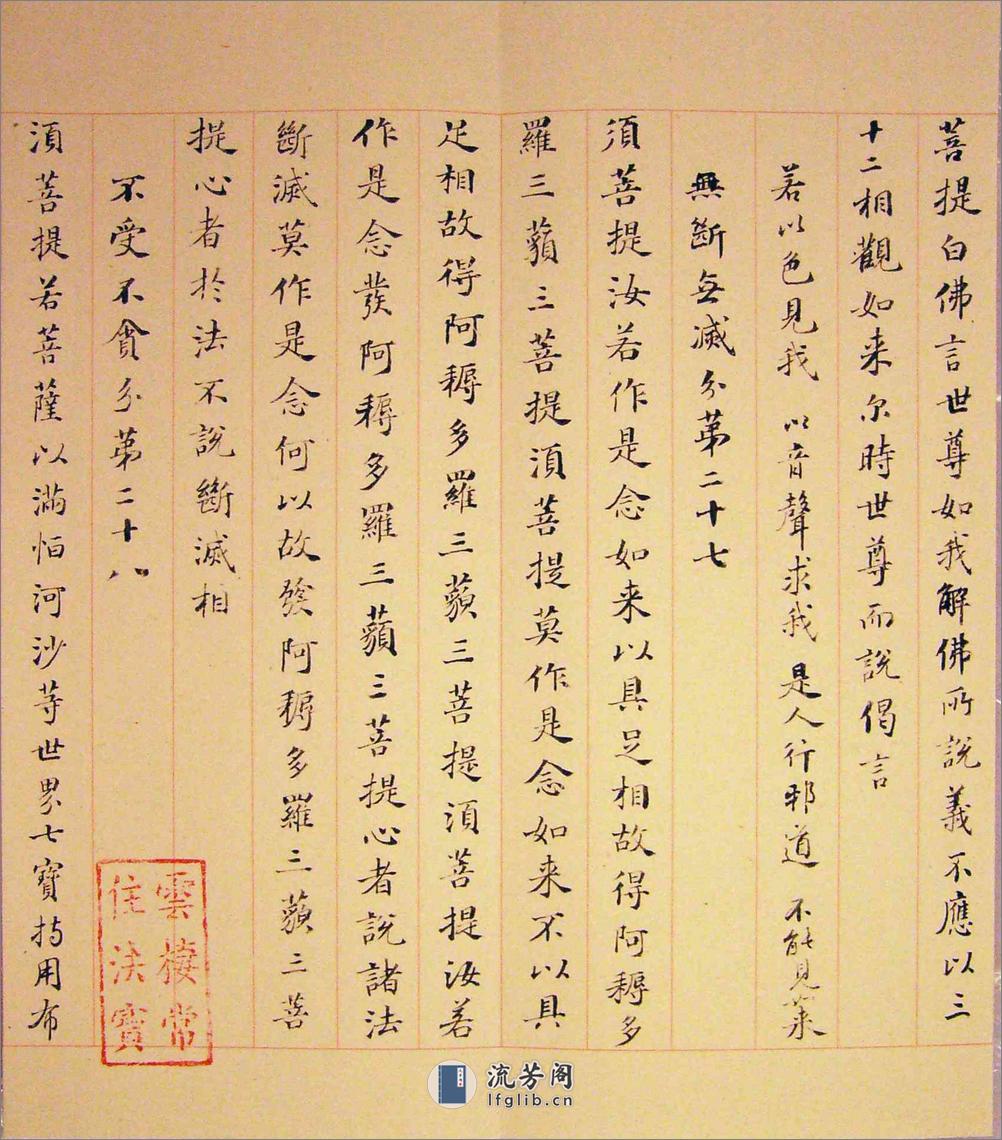 菩提白佛言世尊如我解佛所說義不應以三
十二相觀如来尔時世尊而說偈言
若以色見我 以音聲求我 是人行邪道 不能見如来
無斷無滅分第二十七
須菩提汝若作是念如来以具足相故得阿耨多
羅三藐三菩提須菩提莫作是念如来不以具
足相故得阿耨多羅三藐三菩提須菩提汝若
作是念發阿耨多羅三藐三菩提心者說諸法
斷滅莫作是念何以故發阿耨多羅三藐三菩
提心者於法不說斷滅相
不受不貪分第二十八
須菩提若菩薩以滿恒河沙等世界七寶持用布
雲棲常
住法寶
流芳阁
lfglib.cn